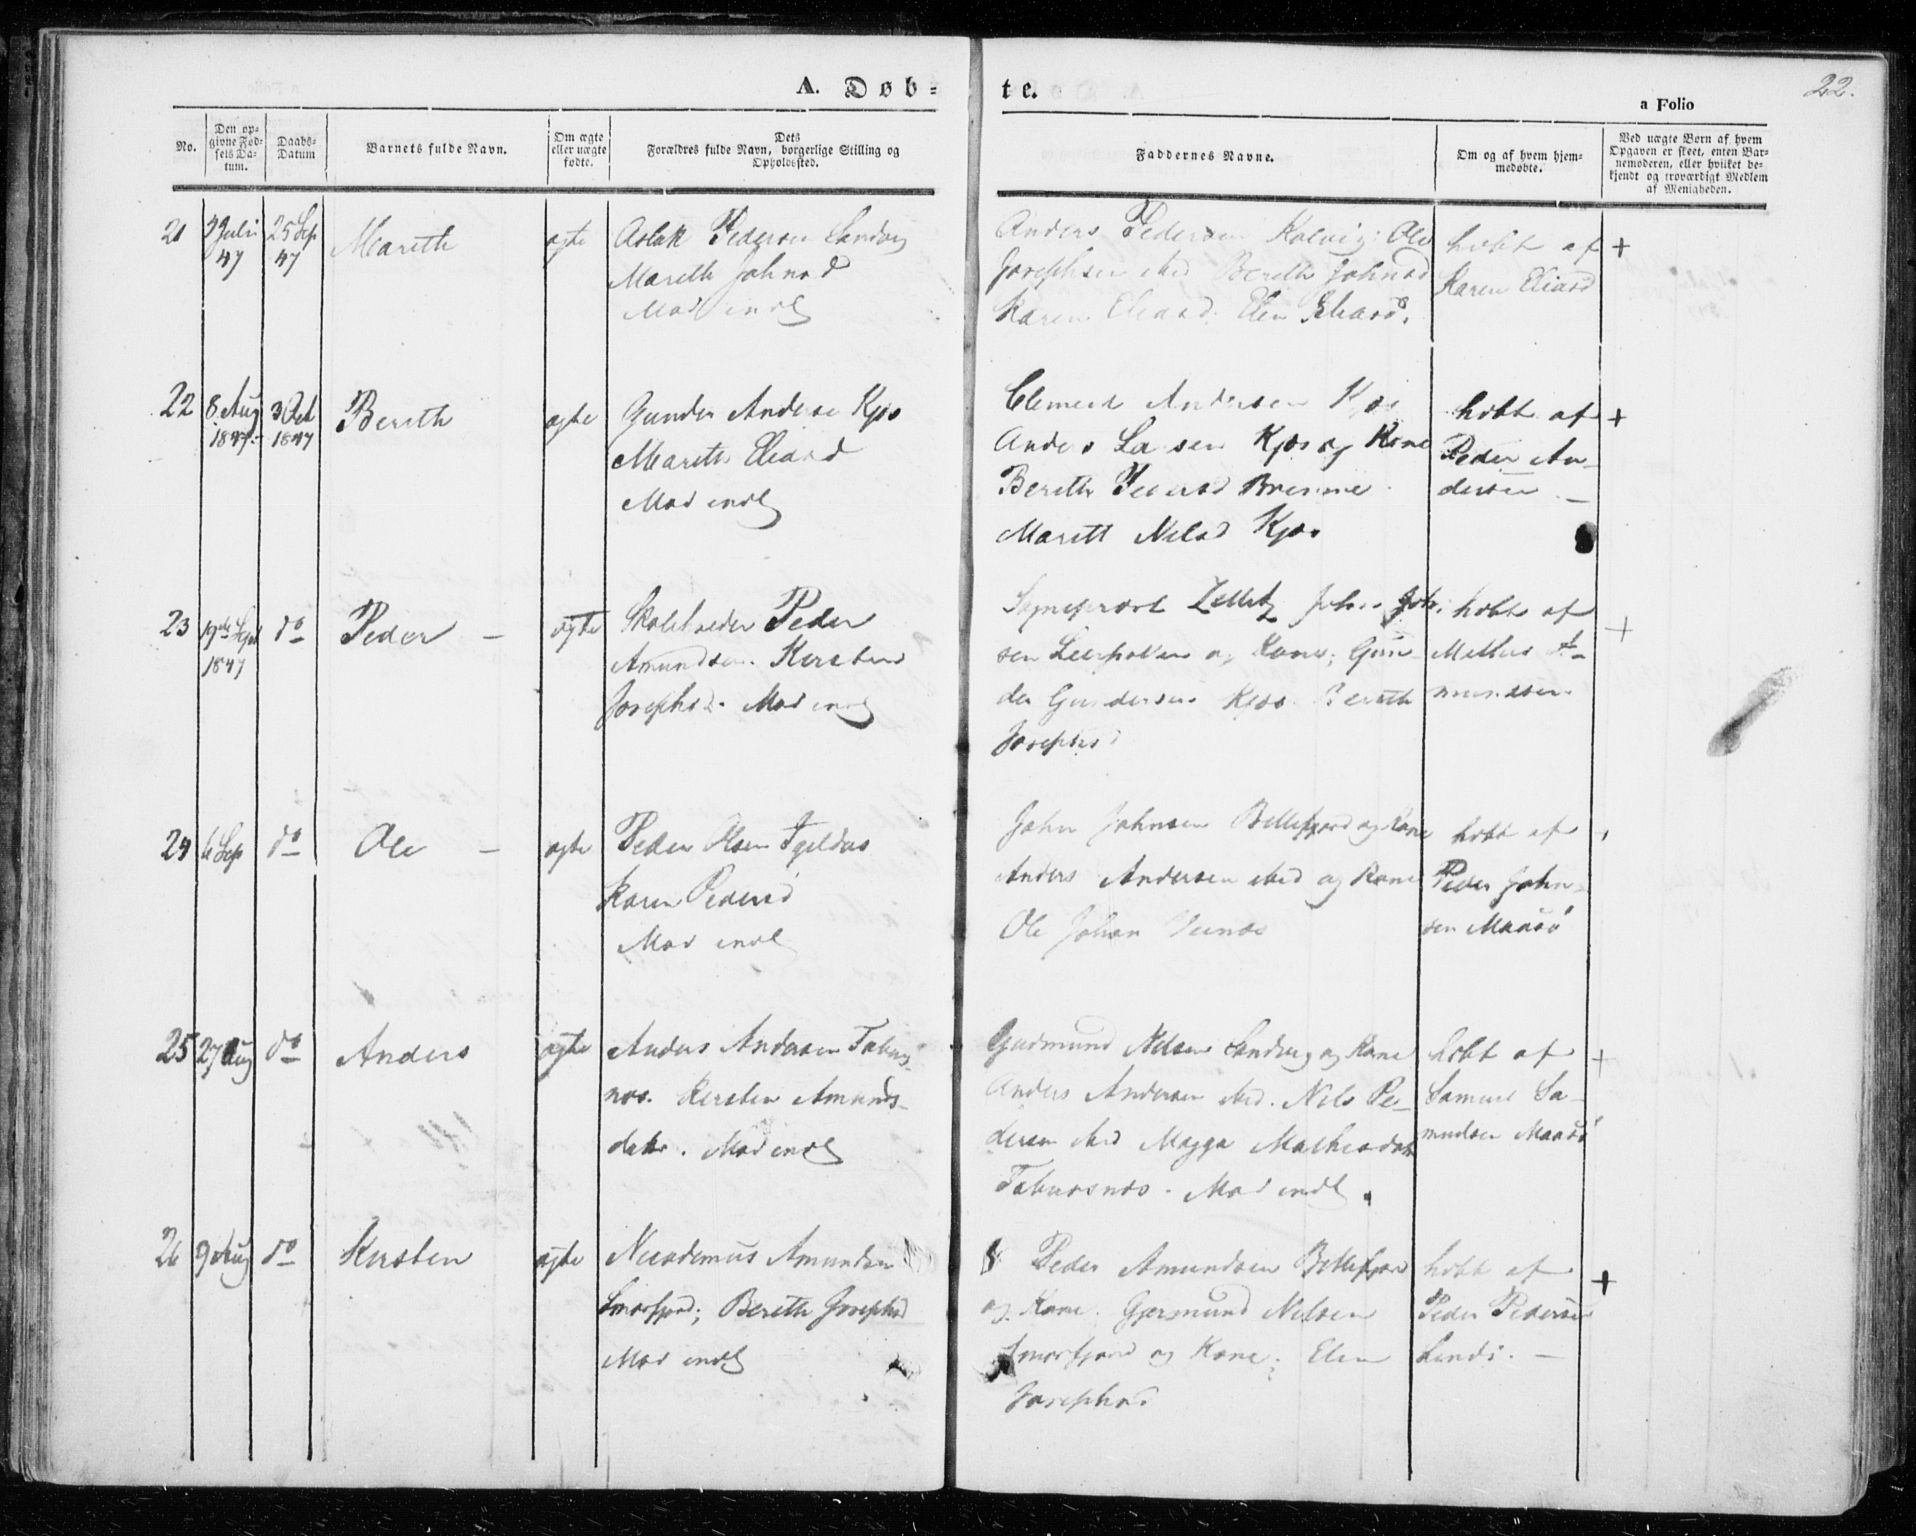 A. Døb-
te.
a Folio
22.
No.
Den op-
givne Fød-
sels Da-
tum.
Daabs-
Datum
Barnets fulde Navn.
Om ægte
eller uægte
fødte.
Dets
Forældres fulde Navn, borgerlige Stilling og
Opholdssted.
Faddernes Navne.
Om og af hvem hjem-
medøbte.
Ved uægte Børn af hvem
Opgaven er skeet, enten Bar-
nemoderen, eller hvilket be-
kjendt og troværdigt Medlem
af Menigheden.
21
Juli
47
25 Sep
47
Mareth
ægte
Aslak Pedersen Sandvig
Mareth Johnsd
Mod indl
Anders Pedersen Kolvig; Ole
Josephsen ibid Bereth Johnsd
Karen Eliasd; Elen Eliasd.
hebt af
Karen Eliasd
+
22
8 Aug
1847
3 Oct
1847
Bereth
ægte
Gunder Anderse Kjæs
Mareth Eliasd
Mod indl
Clement Andersen Kjæs
Anders Larsen Kjæs og Kone
Bereth Iversd Brenme
Marett Nilsd Kjæs
hebt af
Peder An-
dersen –
+
23
19de Sept
1847
do
Peder –
ægte
Skoleholder Peder
Amundsen. Kersten
Josephsd. Mod indl
Sognepræst Zetlitz John Joh:
sen Leerpollen og Kone; Gun-
der Gundersen Kjæs Bereth
Josephsd
hebt af
Mathis A-
mundsen
+
24
6 Sep
do
Ole –
ægte
Peder Olsen Igeldas
Karen Pedersd
Mod indl
John Johnsen Billefjord og Kone
Anders Andersen ibid og Kone
Ole Johan
hebt af
Peder John-
sen Maasø
25
27 Aug
do
Anders
ægte
Anders Andersen Taburs-
næs. Kersten Amunds-
datr. Mod indl
Gudmund Nilsen Sandvig og Kone
Anders Andersen ibid. Nils Pe-
dersen ibid Magga Mathisdatr
Tabursnæs. Mod indl.
hebt af
Samuel Sa-
muelsen Maasø
+
26
9 Aug
do
Kersten
ægte
Nicodemus Amundsen
Smørfjord; Bereth Josephsd
Mod indl
Peder Amundsen Billefjord
og Kone. Gjermund Nilsen
Smørfjord og Kone; Elen
Josephsd.
hebt af
Peder Pedersen
Lindi. –
+